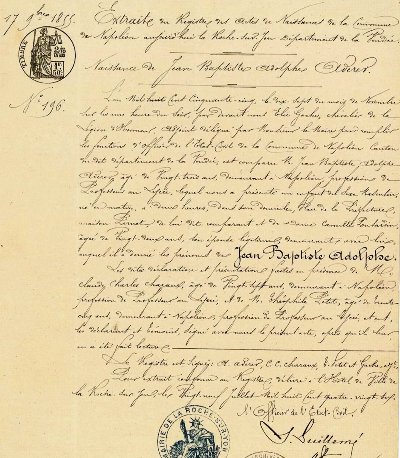 17 9bre 1855.
Extrait du Registre des Actes de Naissance de la Commune
de Napoléon aujourd'hui la Roche sur Yon, département de la Vendée.
Naissance de Jean Baptiste Adolphe Aderer
N° 196.
L'an Mil huit Cent Cinquante cinq, le dix sept du mois de Novembre
sur les onze heures du soir, par devant nous Elie Gache, chevalier de la
Légion d'Honneur, Adjoint délégué par Monsieur le Maire pour remplir
les fonctions d'Officier de l'Etat Civil de la Commune de Napoléon Canton
du dit département de la Vendée, est comparu M. Jean Baptiste, Adolphe
Aderer, âgé de Vingt demeurant à Napoléon, profession de
Professeur au Lycée, lequel nous a présenté un enfant du Sexe Masculin,
né ce matin, à deux heures, dans son domicile, Place de la Préfecture,
maison de lui dit comparant et de dame Camille
âgée de Vingt deux ans, son épouse légitime, demeurant avec lui,
auquel il a donné les prénoms de Jean Baptiste Adolphe.
Les dites déclaration et présentation faites en présence de M.
Claude Charles Charaux, âgé de Vingt sept ans, demeurant à Napoléon
profession de Professeur au Lycée, et de M. Théophile Petit, âgé de trente
ans, demeurant à Napoléon, profession de Professeur au Lycée, et ont,
les déclarant et témoins, signé avec nous le présent acte, après qu'il leur
en a été fait lecture.
Le Registre est signé: A. Aderer, C. C. Charaux, T. Petit et Gache, adj.
Pour extrait conforme au Registre, délivré à l'Hôtel de Ville de
la Roche sur Yon, le Vingt neuf Juillet Mil huit Cent quatre vingt
L'Officier de l'Etat Civil,
MAIRIE DE LA ROCHE-SUR-YON